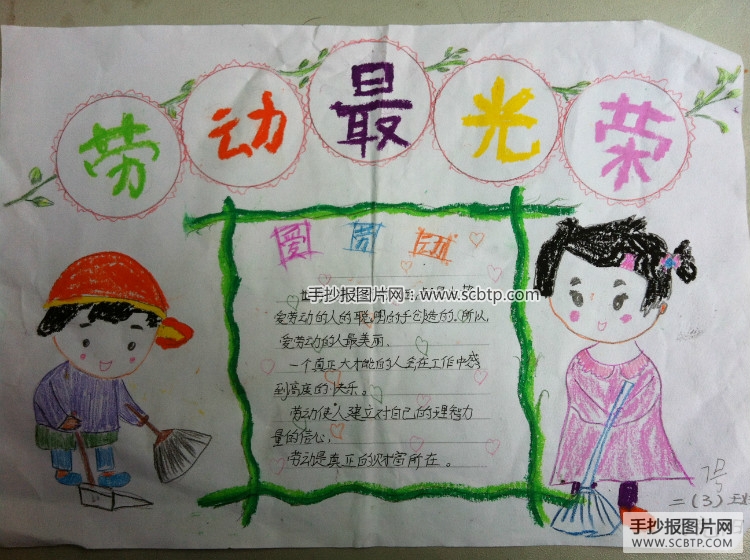 劳动最光荣
爱劳动
手抄报图片网：www.scbtp.com
爱劳动的人的聪明的手创造的。所以，
爱劳动的人最美丽。
一个真正大才能的人会在工作中感
到高度的快乐。
劳动使人建立对自己的理智力
量的信心，
劳动是真正的财富所在。
二（3）王
手抄报图片网
WWW.SCBTP.COM